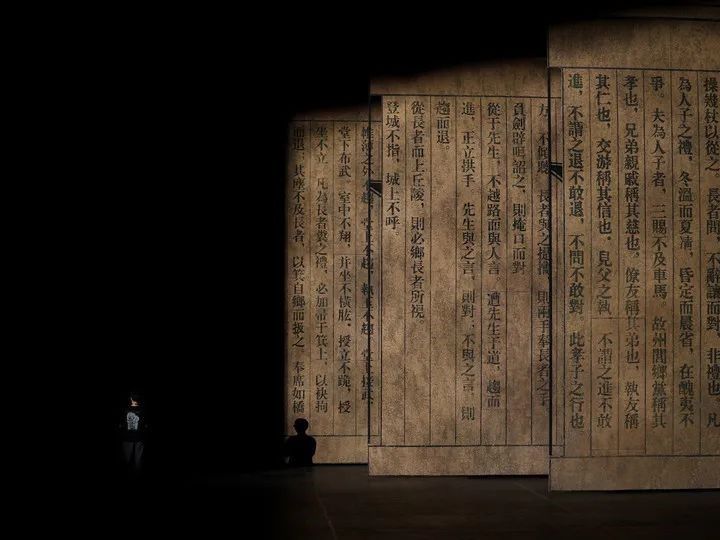 操幾杖以從之。長者問，不辭讓而對，非禮也。凡
為人子之禮，冬溫而夏凊，昏定而晨省，在醜夷不
爭。夫為人子者，三賜不及車馬。故州閭鄉黨稱其
孝也，兄弟親戚稱其慈也，僚友稱其弟也，執友稱
其仁也，交游稱其信也。見父之執，不謂之進不敢
進，不謂之退不敢退，不問不敢對。此孝子之行也
方，不傾聽。長者與之提攜，則兩手奉長者之手
負劍辟咡詔之，則掩口而對
從于先生，不越路而與人言。遭先生于道，趨而
進，正立拱手。先生與之言，則對；不與之言，則
趨而退
從長者而上丘陵，則必鄉長者所視。
登城不指，城上不呼。
帷薄之外不趨，堂上不趨，執玉不趨。堂上接武，
堂下布武。室中不翔，并坐不橫肱。授立不跪，授
坐不立。凡為長者糞之禮，必加帚于箕上，以袂拘
而退；其塵不及長者，以箕自鄉而扱之。奉席如橋